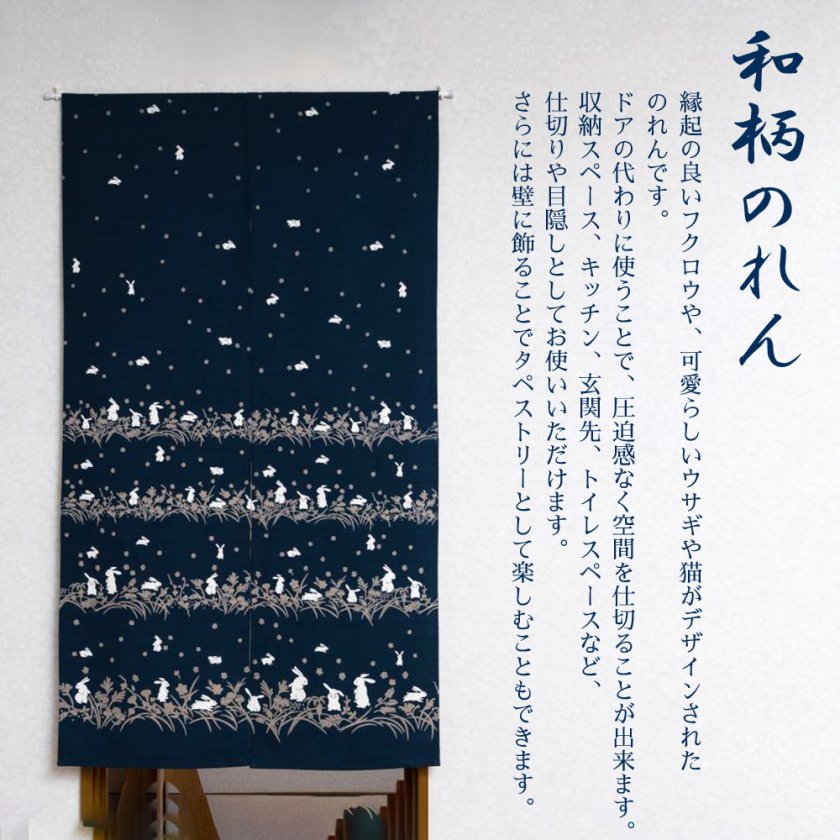 和柄のれん
縁起の良いフクロウや、可愛らしいウサギや猫がデザインされた
のれんです。
ドアの代わりに使うことで、圧迫感なく空間を仕切ることが出来ます。
収納スペース、キッチン、玄関先、トイレスペースなど、
仕切りや目隠しとしてお使いいただけます。
さらには壁に飾ることでタペストリーとして楽しむこともできます。